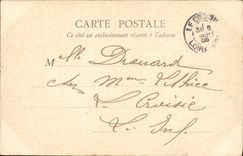 CARTE POSTALE
Ce côté est exclusivement réservé à l'adresse
LE CROISIC
Mlle Drouard
chez Mme
Le Croisic
L. Inf.